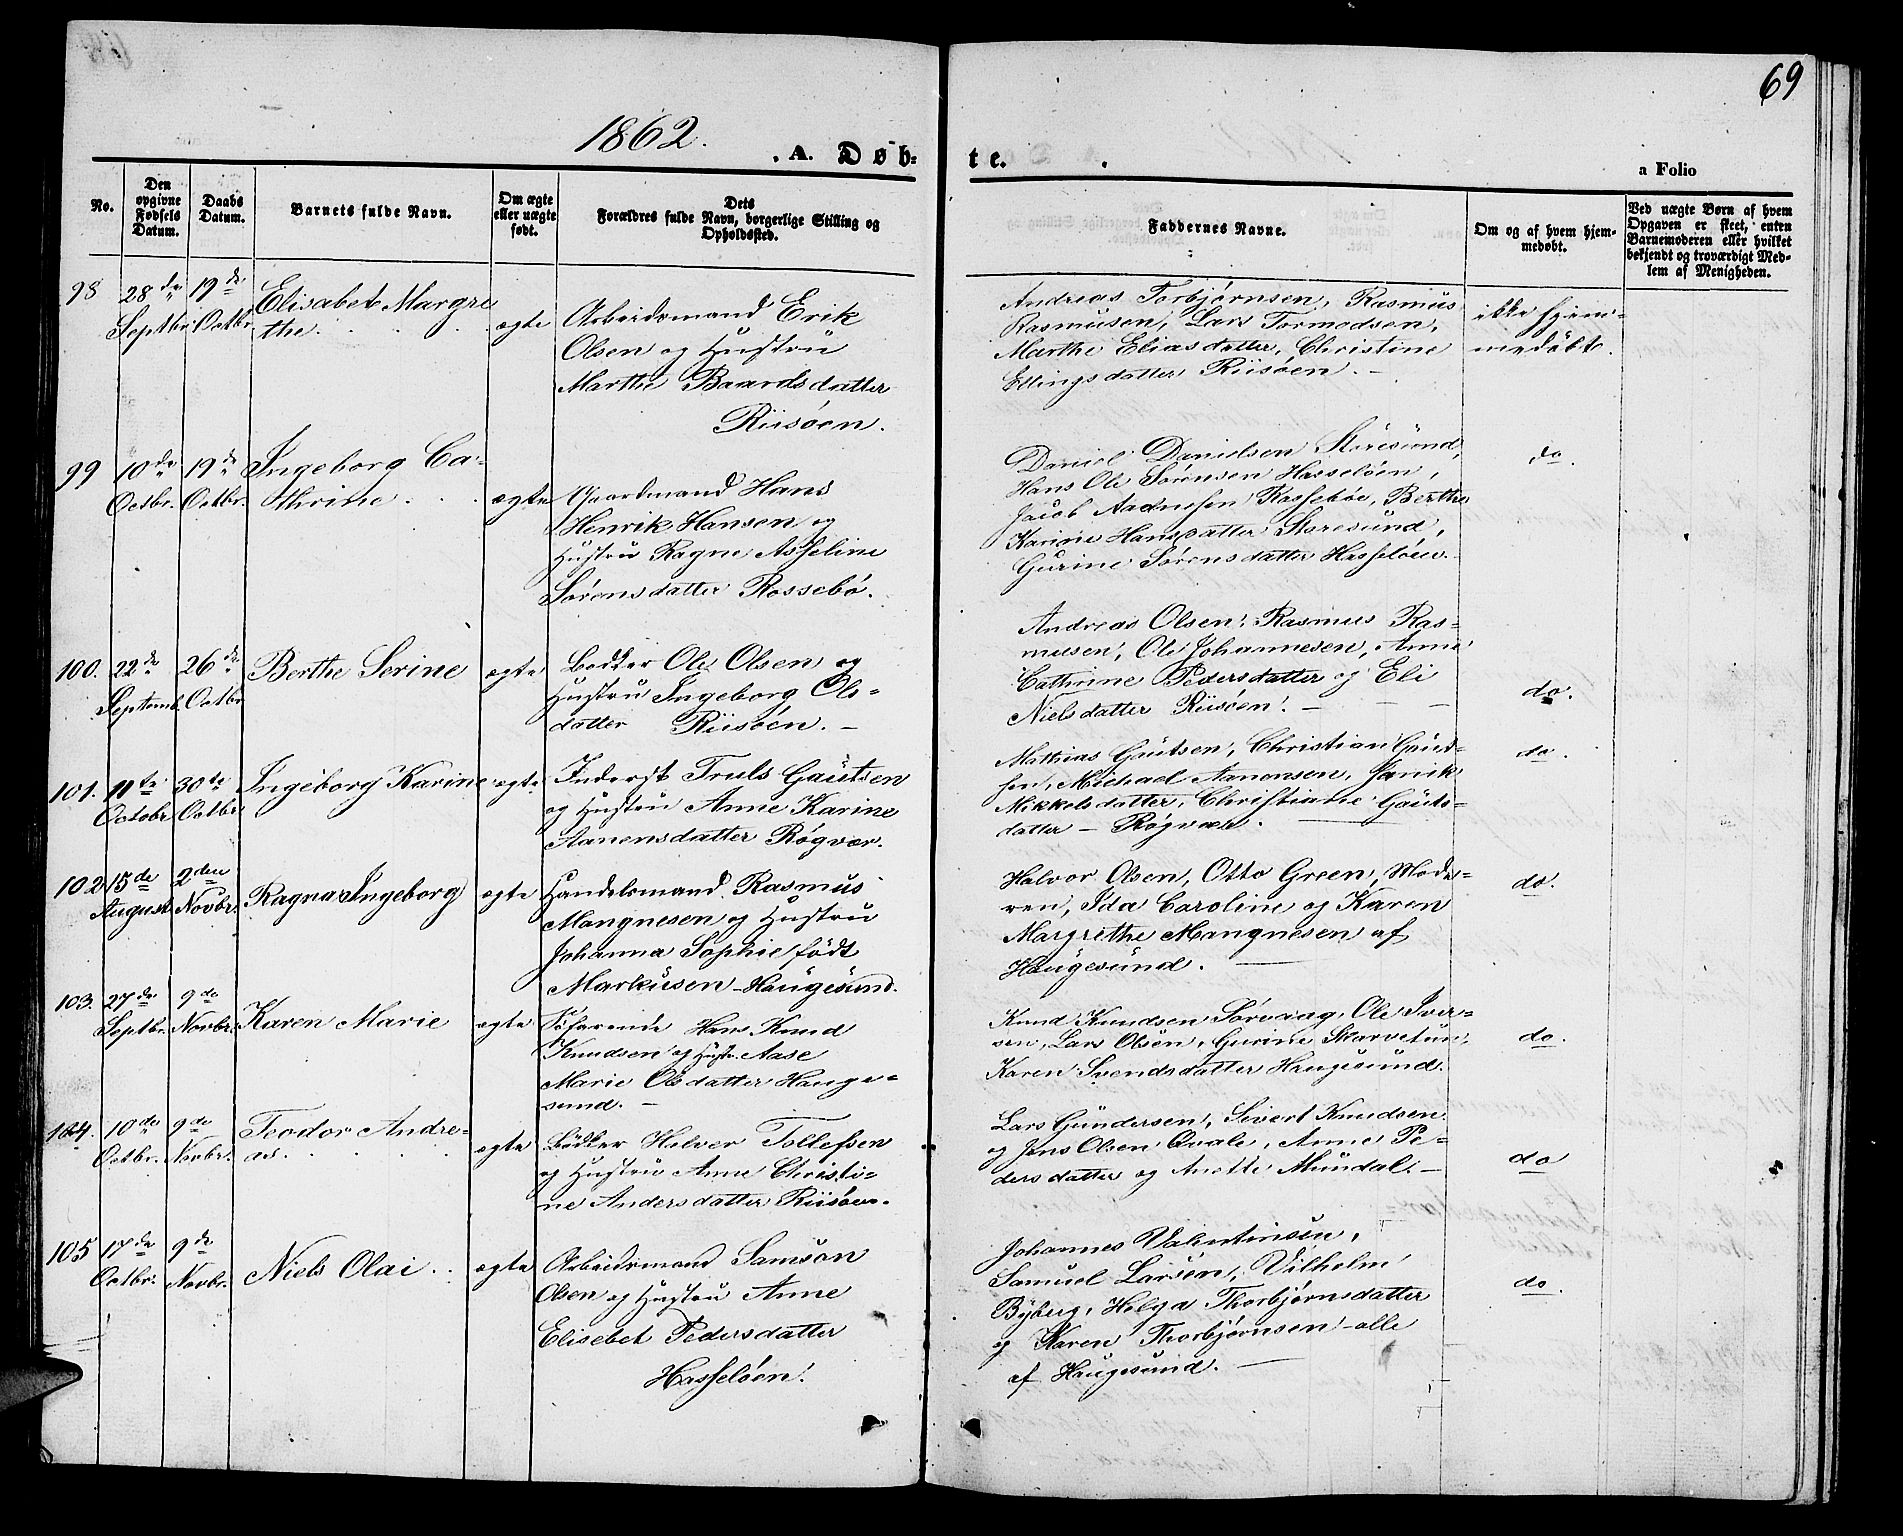 69
1862.
A. Døb-
te.
a Folio
No.
Den opgivne Fødsels Datum.
Daabs Datum.
Barnets fulde Navn.
Om ægte eller uægte født.
Dets Forældres fulde Navn, borgerlige Stilling og Opholdssted.
Faddernes Navne.
Om og af hvem hjemmedøbt.
Ved uægte Børn af hvem Opgaven er skeet, enten Barnemoderen eller hvilket bekjendt og troværdigt Medlem af Menigheden.
98
28de Septbr.
19de Octbr.
Elisabet Margre
the.
ægte
Arbeidsmand Erik
Olsen og Hustru
Marthe Baardsdatter
Riisøen.
Andreas Torbjørnsen, Rasmus
Rasmusen, Lars Tormodsen,
Marthe Eliasdatter, Christine
Ellingsdatter Riisøen. -
ikke hjem-
medøbt.
99
10de Octbr.
19de Octbr.
Ingeborg Ca-
thrine.
ægte
Gaardmand Hans
Henrik Hansen og
Hustru Ragne Asseline
Sørensdatter Rossebø.
Daniel Danielsen Storesund,
Hans Ole Sørensen Hasseløen,
Jacob Aadnesen Rossebøe, Berthe
Karine Hansdatter Storesund,
Gurine Sørensdatter Hasseløen.
do.
100.
22de Septemb.
26de Octbr.
Berthe Serine
ægte
Bødker Ole Olsen og
Hustru Ingeborg Ols-
datter Riisøen. -
Andreas Olsen, Rasmus Ras-
musen, Ole Johannesen, Anne
Cathrine Pedersdatter og Eli
Nielsdatter Riisøen. -
do.
101.
11te Octobr.
30te Octbr.
Ingeborg Karine
ægte
Inderst Truls Gautsen
og Hustru Anne Karine
Aanensdatter Røgvær.
Mathias Gautsen, Christian Gaut-
sen, Michael Aanensen, Janik
Mikkelsdatter, Christiane Gauts-
datter - Røgvær.
do.
102
15de August
2den Novbr.
Ragna Ingeborg
ægte
Handelsmand Rasmus
Mangnesen og Hustru
Johanna Sophie født
Markusen - Haugesund.
Halvor Olsen, Otto Green, Mode-
ren, Ida Caroline og Karen
Margrethe Mangnesen af
Haugesund.
do.
103.
27de Septbr.
9de Novbr.
Karen Marie
ægte
Søfarende Hans Knud
Knudsen og Hustr. Aase
Marie Olsdatter Hauge-
sund. -
Knud Knudsen Sørvaag, Ole Iver-
sen, Lars Olsen, Gurine Skarvetun,
Karen Svendsdatter Haugesund.
do.
104.
10de Octbr.
9de Novbr.
Teodor Andre-
as.
ægte
Bødker Halver Tollefsen
og Hustru Anne Christi-
ne Andersdatter Riisøen.
Lars Gundersen, Sivert Knudsen
og Jens Olsen Qvale, Anne Pe-
dersdatter og Anette Mundal. -
do
105
17de Octbr.
9de Novbr.
Niels Olai.
ægte
Arbeidsmand Samson
Olsen og Hustru Anne
Elisebet Pedersdatter
Hasseløen.
Johannes Valentinsen,
Samuel Larsen, Vilhelm
Byberg, Helga Thorbjørnsdatter
og Karen Thorbjørnsen - alle
af Haugesund.
do.